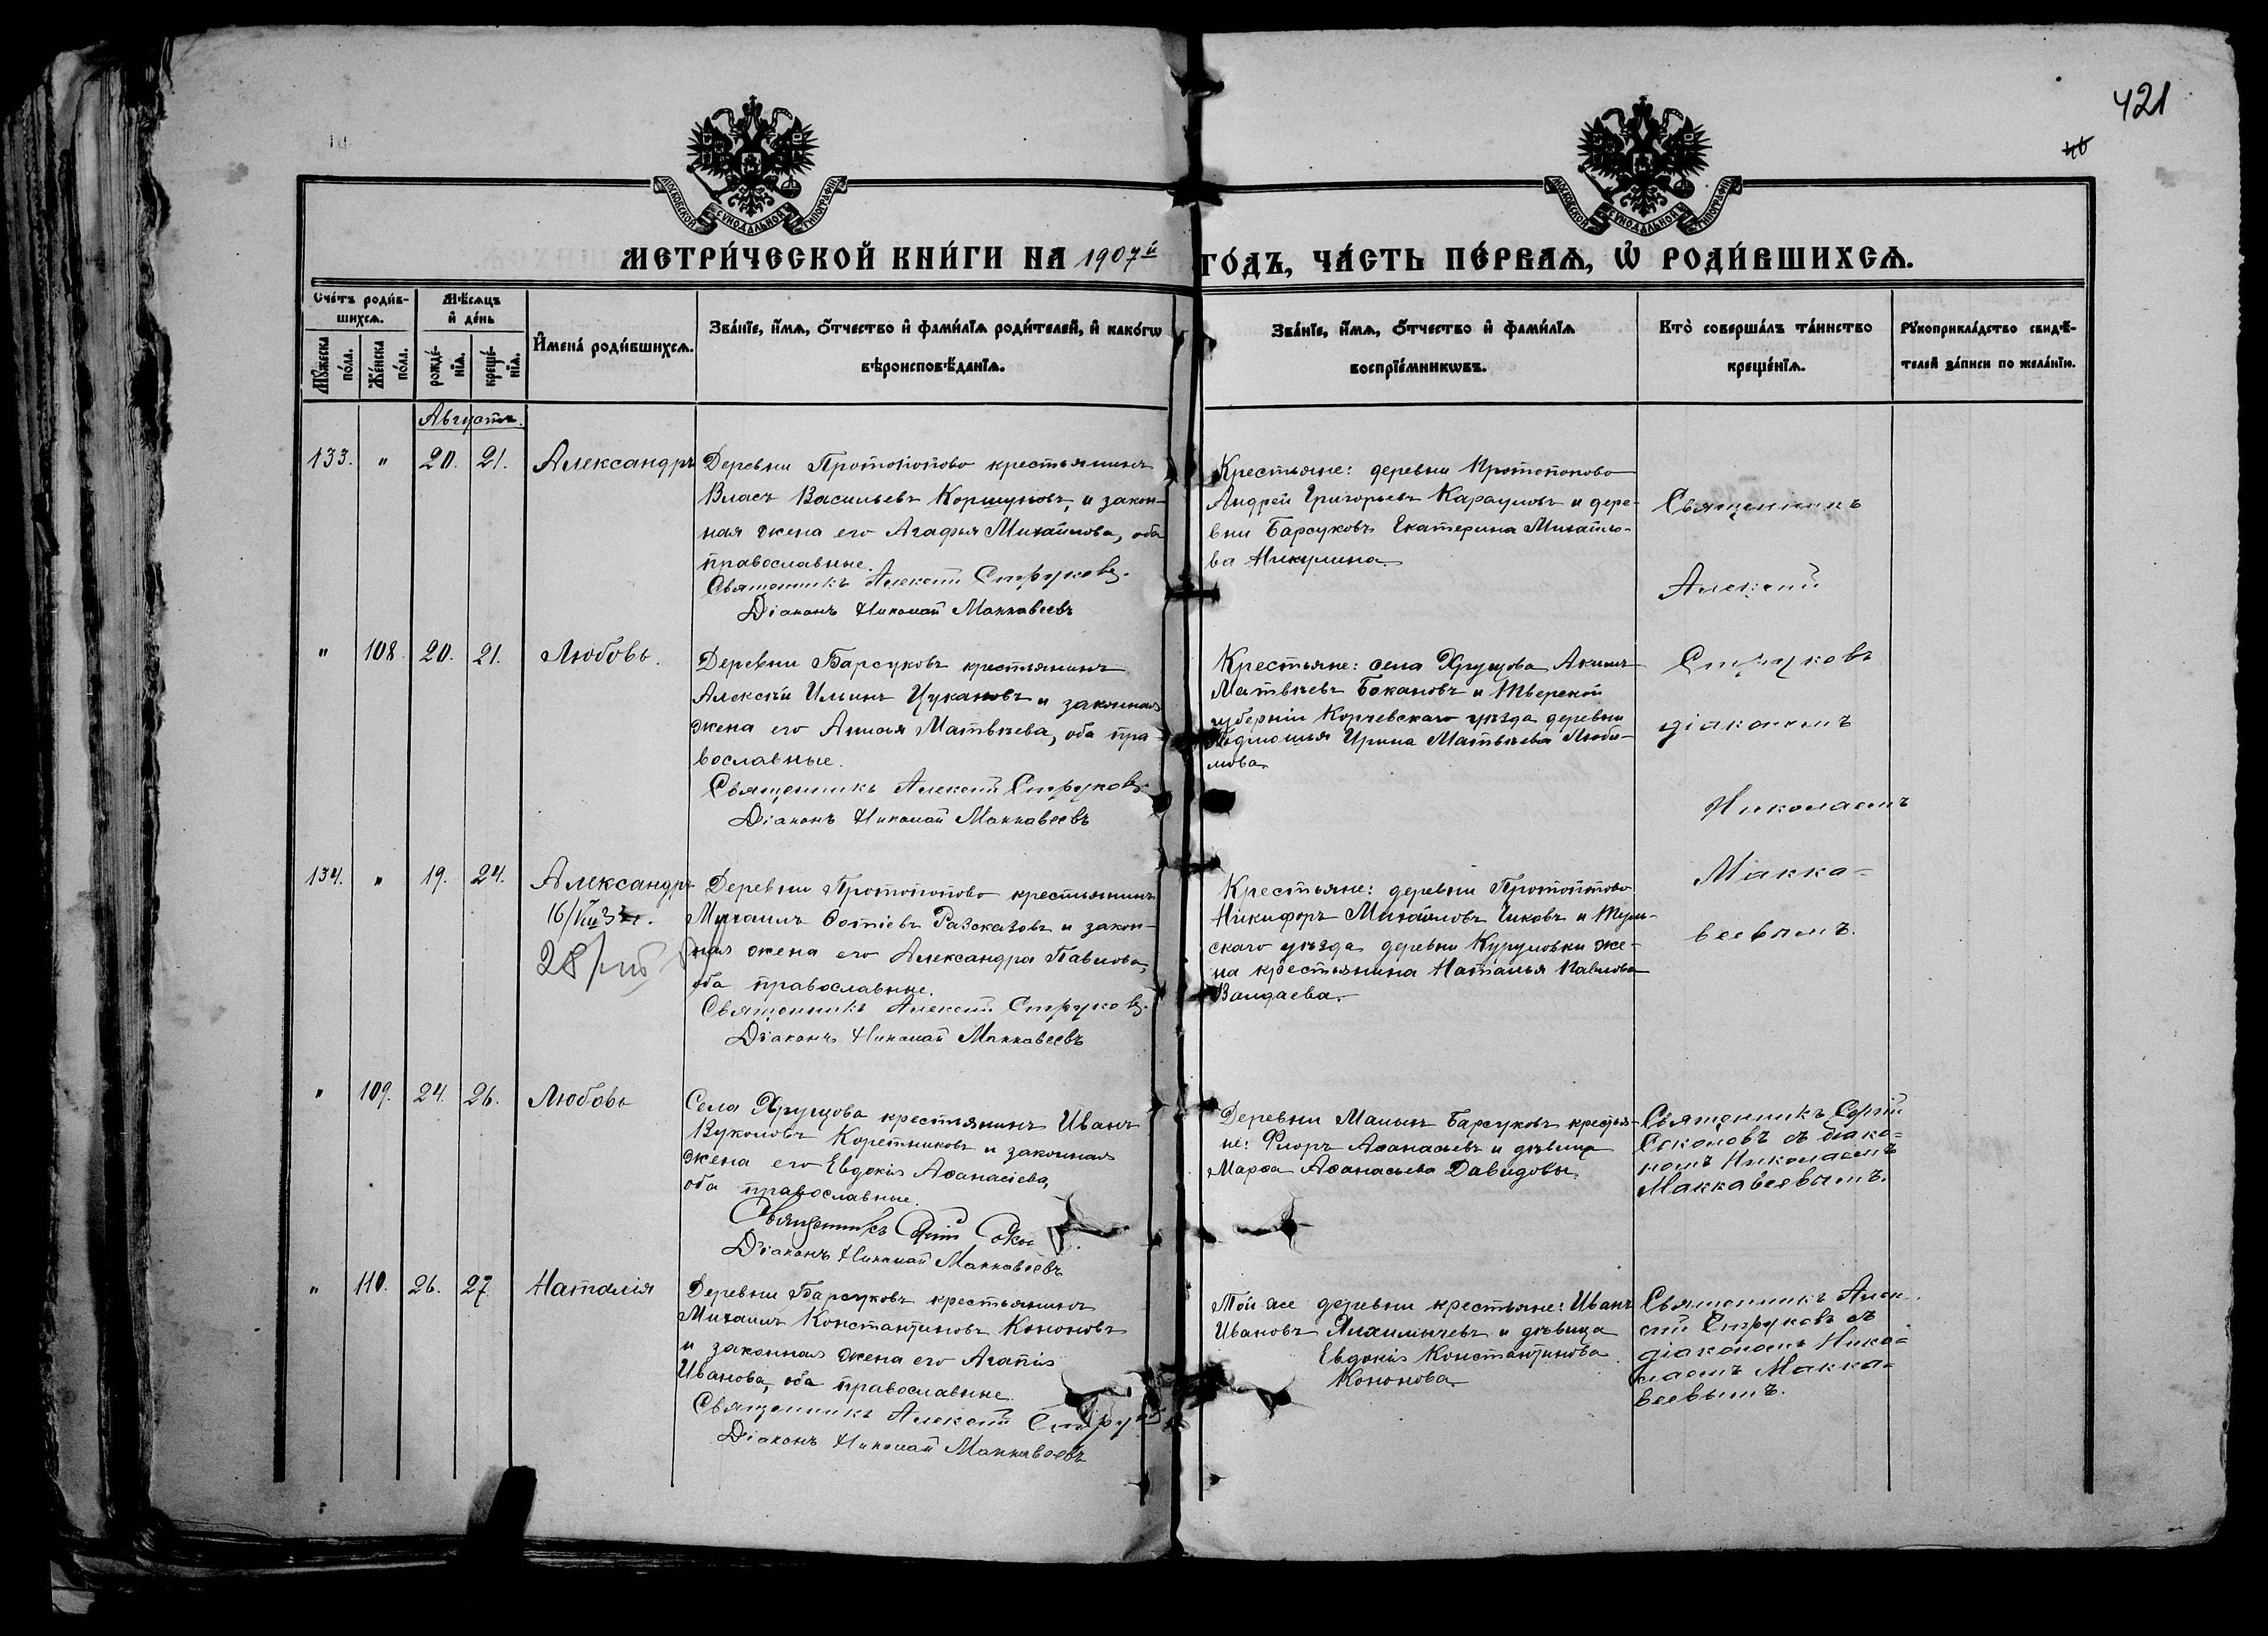 421
46
МОСКОВСКОЙ СѴНОДАЛЬНОЙ ТИПОГРАФІИ
МОСКОВСКОЙ СѴНОДАЛЬНОЙ ТИПОГРАФІИ
МЕТРИ́ЧЕСКОЙ КНИ́ГИ НА 1907й ГО́ДЪ, ЧА́СТЬ ПЕ́РВАѦ, Ѡ҆ РОДИ́ВШИХСѦ.
Сче́тъ роди́в-
шихсѧ.
Мꙋ́жеска по́ла.
Же́нска по́ла.
Мѣ́сѧцъ
и҆ де́нь
рожде́-
нїѧ.
креще́-
нїѧ.
И҆мена̀ роди́вшихсѧ.
Зва́нїе, и҆́мѧ, ѻ҆́тчество и҆ фами́лїѧ роди́телей, и҆ како́гѡ
вѣроисповѣ́данїѧ.
Зва́нїе, и҆́мѧ, ѻ҆́тчество и҆ фами́лїѧ
воспрїе́мникѡвъ.
Кто̀ соверша́лъ та́инство
креще́нїѧ.
Рꙋкоприкла́дство свидѣ́-
телей за́писи по жела́нїю.
Августъ.
133. " 20. 21. Александръ
Деревни Протопопово крестьянинъ
Власъ Васильевъ Коршуновъ, и закон-
ная жена его Агафья Михайлова, оба
православные.
Священникъ Алексій Струковъ.
Діаконъ Николай Маккавеевъ
Крестьяне: деревни Протопопово
Андрей Григорьевъ Карауловъ и дере-
вни Барсуковъ Екатерина Михайло-
ва Никулина
Священникъ
Алексій
Струковъ
діакономъ
Николаемъ
Макка-
веевымъ.
" 108. 20. 21. Любовь.
Деревни Барсуковъ крестьянинъ
Алексѣй Ильинъ Цукановъ и законная
жена его Анисья Матвѣева, оба пра-
вославные.
Священникъ Алексій Струковъ.
Діаконъ Николай Маккавеевъ
Крестьяне: села Хрущова Акимъ
Матвѣевъ Бакановъ и Тверской
губерніи Корчевскаго уѣзда деревни
Ирина Матвѣева Люби-
мова
134. " 19. 24. Александръ
16/VIII
28/VIII
Деревни Протопопово крестьянинъ
Михаилъ Фотіевъ Разсказовъ и закон-
ная жена его Александра Павлова,
оба православные.
Священникъ Алексій Струковъ.
Діаконъ Николай Маккавеевъ
Крестьяне: деревни Протопопово
Никифоръ Михайловъ Чиковъ и Туль-
скаго уѣзда деревни Курумовки же-
на крестьянина Наталья Павлова
Валдаева.
" 109. 24. 26. Любовь
Села Хрущова крестьянинъ Иванъ
Вуколовъ Коретниковъ и законная
жена его Евдокія Аѳанасіева,
оба православные.
Священникъ Сергій Соколовъ.
Діаконъ Николай Маккавеевъ
Деревни Малыхъ Барсуковъ крестья-
не: Флоръ Аѳанасьевъ и дѣвица
Марѳа Аѳанасьева Давидовы.
Священникъ Сергій
Соколовъ съ діако-
номъ Николаемъ
Маккавеевымъ.
" 110. 26. 27. Наталія
Деревни Барсуковъ крестьянинъ
Михаилъ Константиновъ Кононовъ
и законная жена его Агапія
Иванова, оба православные.
Священникъ Алексій Струковъ
Діаконъ Николай Маккавеевъ
Той же деревни крестьяне: Иванъ
Ивановъ и дѣвица
Евдокія Константинова
Кононова.
Священникъ Алек-
сій Струковъ съ
діакономъ Нико-
лаемъ Макка-
веевымъ.